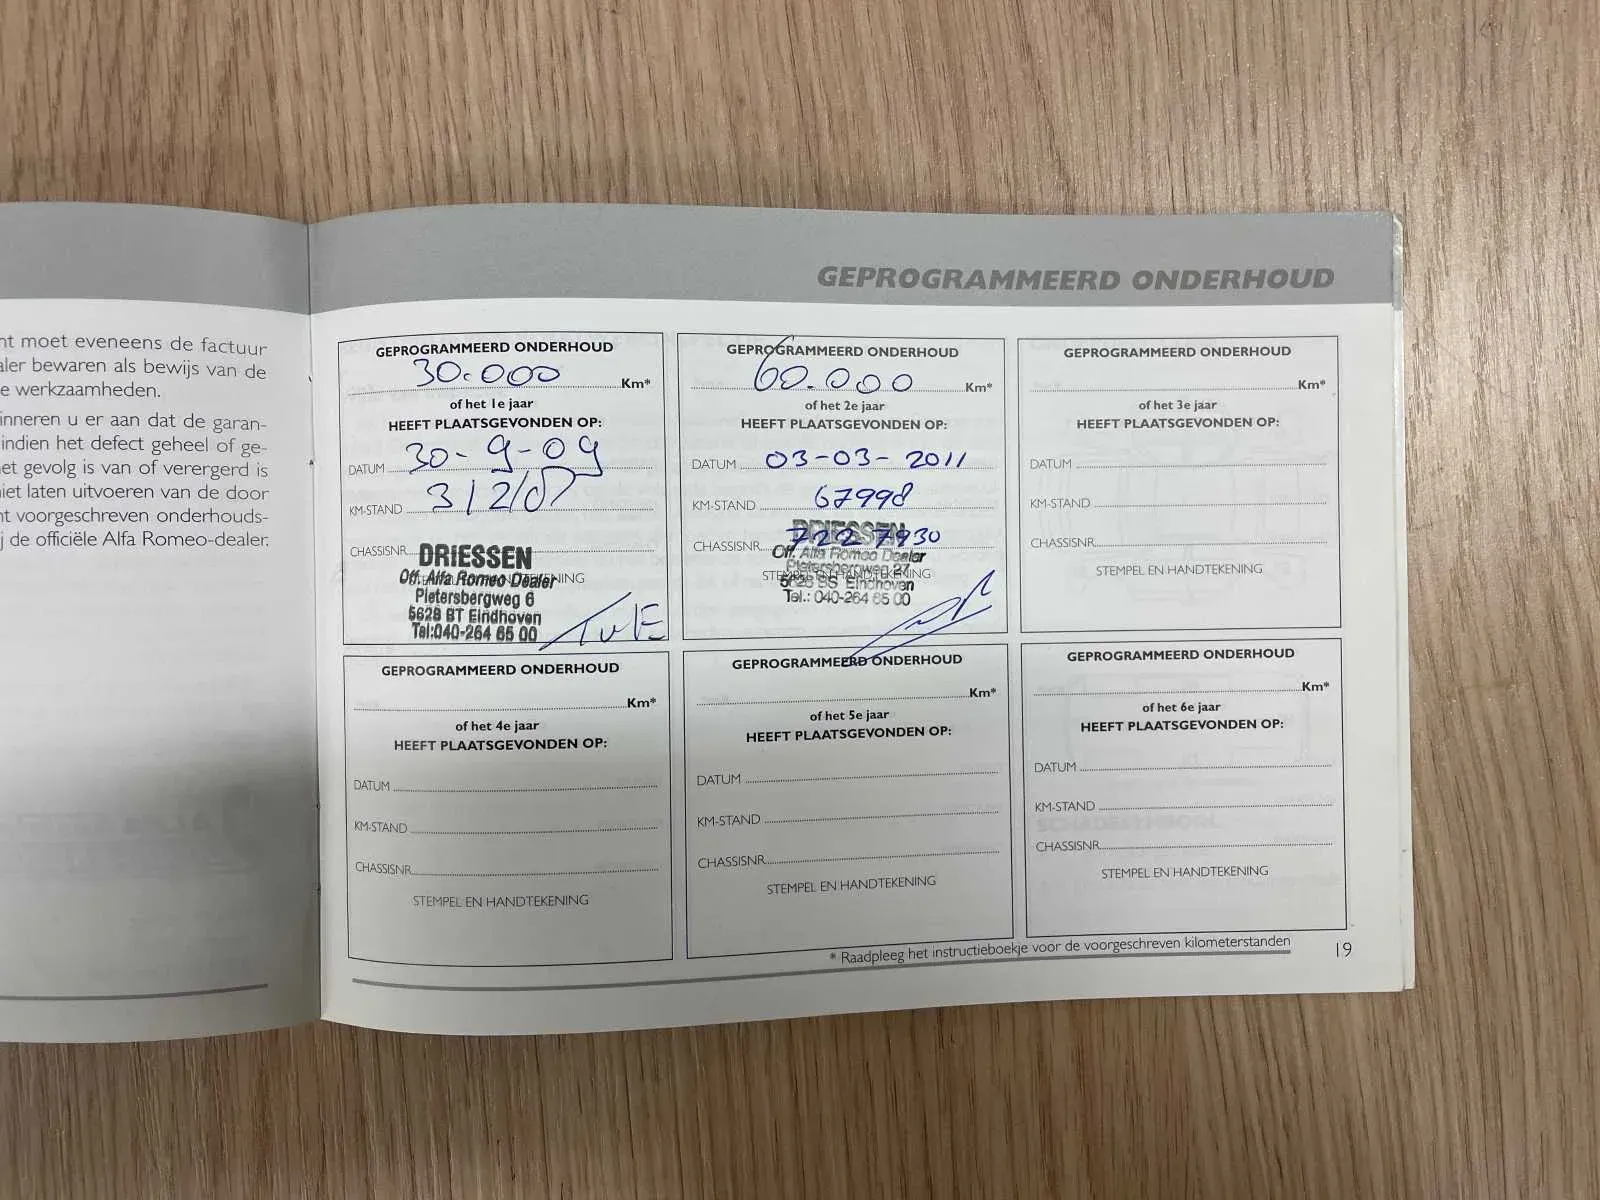 nt moet eveneens de factuur
aler bewaren als bewijs van de
e werkzaamheden.
inneren u er aan dat de garan-
indien het defect geheel of ge-
et gevolg is van of verergerd is
niet laten uitvoeren van de door
nt voorgeschreven onderhouds-
j de officiële Alfa Romeo-dealer.
GEPROGRAMMEERD ONDERHOUD
GEPROGRAMMEERD ONDERHOUD
30.000 Km*
of het 1e jaar
HEEFT PLAATSGEVONDEN OP:
DATUM 30-9-09
KM-STAND
CHASSISNR.
STEMPEL EN HANDTEKENING
DRIESSEN
Off. Alfa Romeo Dealer
Pietersbergweg 6
5628 BT Eindhoven
Tel:040-264 65 00
GEPROGRAMMEERD ONDERHOUD
60.000 Km*
of het 2e jaar
HEEFT PLAATSGEVONDEN OP:
DATUM 03-03-2011
KM-STAND 67998
CHASSISNR. 7227930
STEMPEL EN HANDTEKENING
DRIESSEN
Off. Alfa Romeo Dealer
Pietersbergweg 27
Eindhoven
Tel.: 040-264 65 00
GEPROGRAMMEERD ONDERHOUD
Km*
of het 3e jaar
HEEFT PLAATSGEVONDEN OP:
DATUM
KM-STAND
CHASSISNR.
STEMPEL EN HANDTEKENING
GEPROGRAMMEERD ONDERHOUD
Km*
of het 4e jaar
HEEFT PLAATSGEVONDEN OP:
DATUM
KM-STAND
CHASSISNR.
STEMPEL EN HANDTEKENING
GEPROGRAMMEERD ONDERHOUD
Km*
of het 5e jaar
HEEFT PLAATSGEVONDEN OP:
DATUM
KM-STAND
CHASSISNR.
STEMPEL EN HANDTEKENING
GEPROGRAMMEERD ONDERHOUD
Km*
of het 6e jaar
HEEFT PLAATSGEVONDEN OP:
DATUM
KM-STAND
CHASSISNR.
STEMPEL EN HANDTEKENING
* Raadpleeg het instructieboekje voor de voorgeschreven kilometerstanden
19